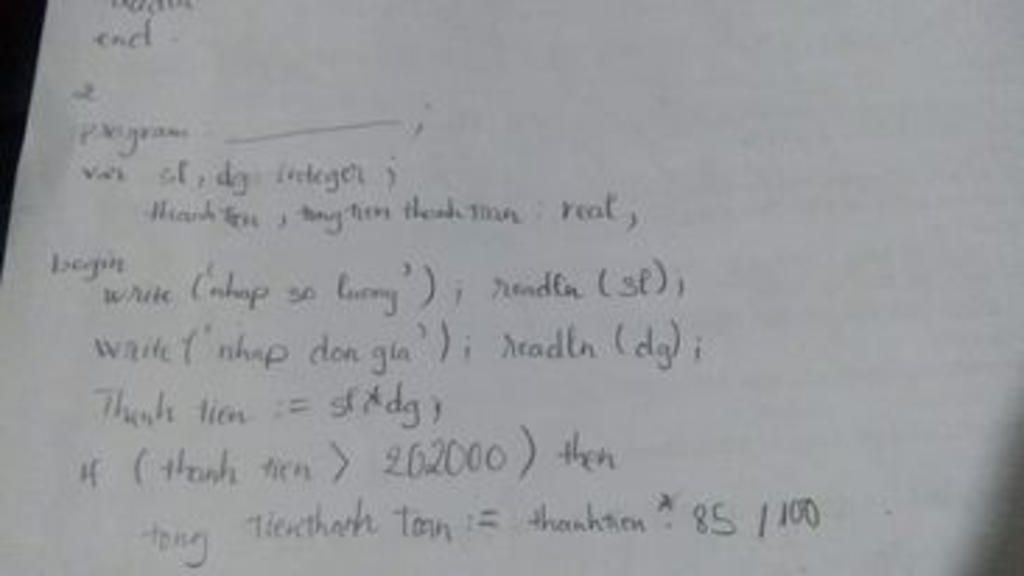 end.
2
program ______ ;
var sl, dg: integer;
thanh tien, tong tien thanh toan : real,
begin
write ('nhap so luong'); readln (sl);
write ('nhap don gia'); readln (dg);
Thanh tien := sl*dg;
if (thanh tien > 202000) then
tong tienthanh toan := thanhtien * 85 / 100